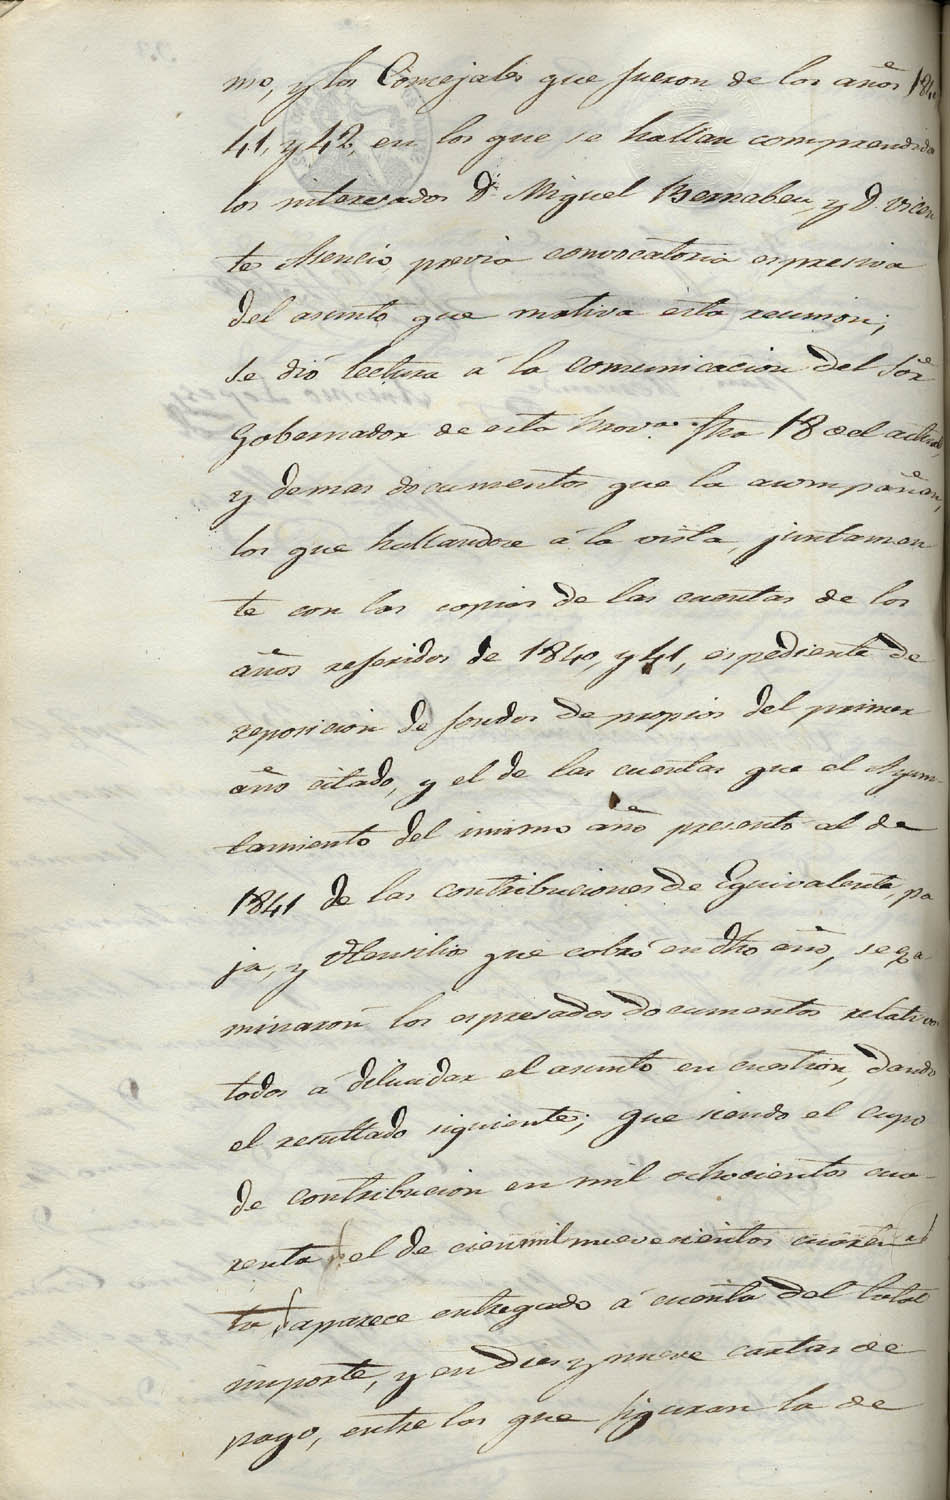 mo, y los Concejales que fueron de los años 1840
41, y 42, en los que se hallan comprendidos
los interesados Dn. Miguel Bernabeu, y D. Vicen
te Asencio, previa convocatoria espresiva
del asunto que motiva esta reunion;
se dió lectura á la comunicacion del Sor
Gobernador de esta Prova. fha 18 del actual,
y demas documentos que la acompañan,
los que hallandose á la vista, juntamen
te con las copias de las cuentas de los
años referidos de 1840, y 41, espediente de
reposicion de fondos de propios del primer
año citado, y el de las cuentas que el Ayun-
tamiento del mismo año presentó al de
1841 de las contribuciones de Equivalente, pa
ja, y Utensilio que cobró en dho año, se exa-
minaron los espresados documentos relativos
todos á dilucidar el asunto en cuestion, dando
el resultado siguiente; que siendo el cupo
de contribucion en mil ochocientos cua-
renta el de cien mil nuevecientos cuaren
ta aparece entregado á cuenta del total
importe, y en diez y nueve cartas de
pago, entre las que figuran la de